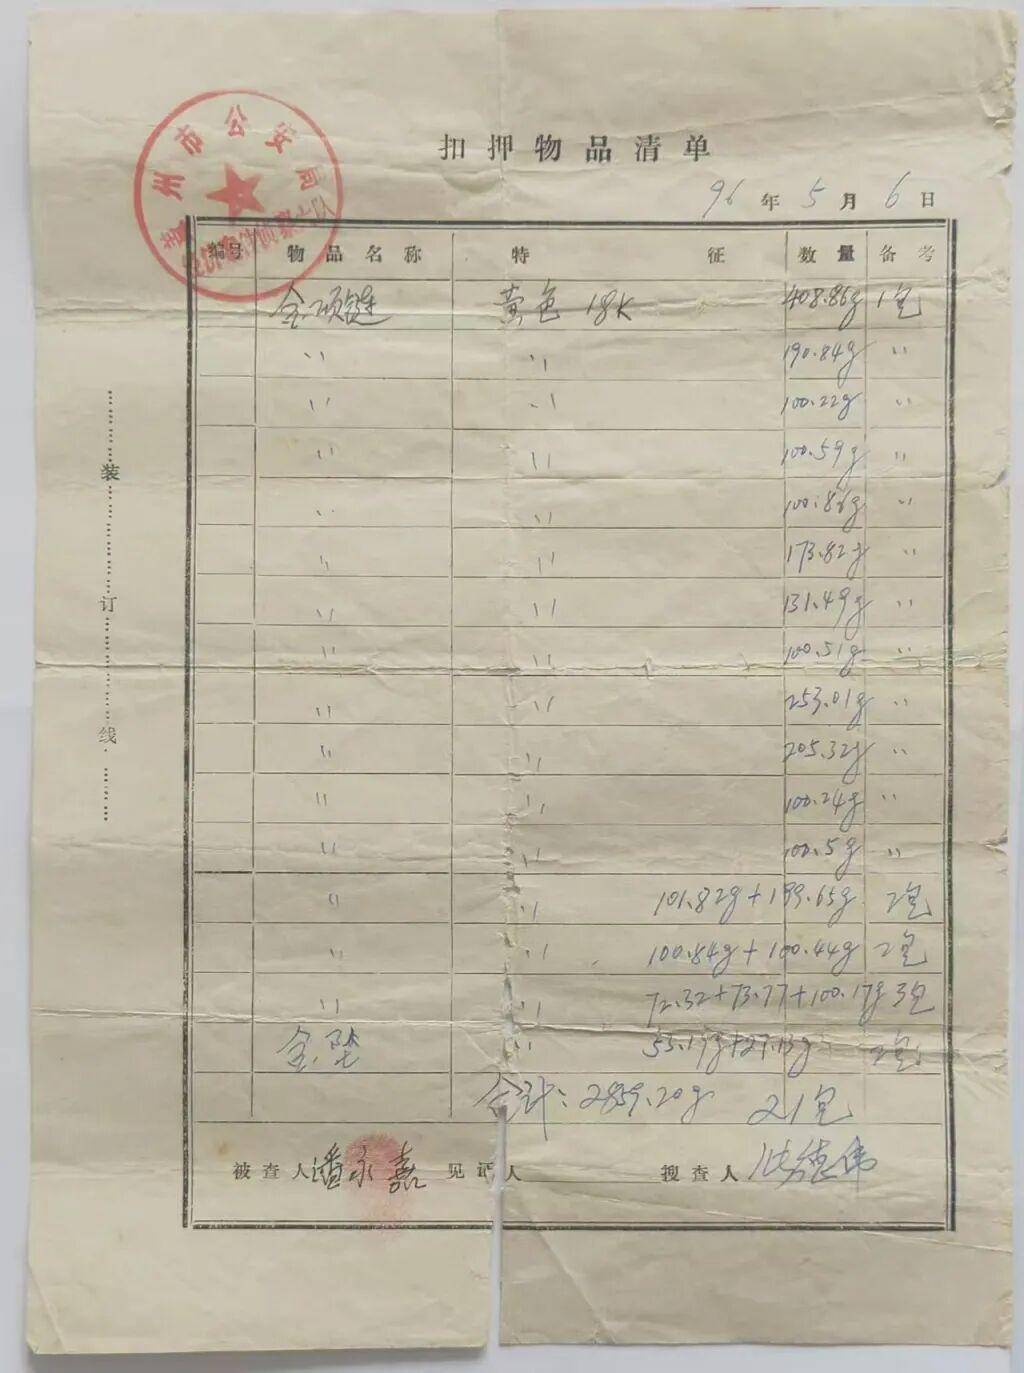 州市公安局
扣押物品清单
96年5月6日
编号 物品名称 特征 数量 备考
金项链 黄色 18K 408.86g 1包
〃 〃 190.84g 〃
〃 〃 100.22g 〃
〃 〃 100.59g 〃
〃 〃 100.86g 〃
〃 〃 173.82g 〃
〃 〃 131.49g 〃
〃 〃 100.51g 〃
〃 〃 253.01g 〃
〃 〃 205.32g 〃
〃 〃 100.24g 〃
〃 〃 100.5g 〃
〃 〃 101.82g+199.65g 2包
〃 〃 100.84g+100.44g 2包
〃 〃 72.32+73.77+100.17g 3包
金坠 〃 55.19g+27.13g 2包
合计：2859.20g 21包
被查人 潘永嘉 见证人 搜查人
装订线